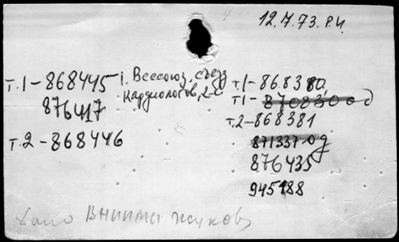 12.7.73. Р.И.
т.1-868445
876417
т.2-868446
1. Всесоюз. съезд
кардиологов, 2-й
т.1-868380,
т1-
т.2-868381
871337
876435
945188
ВНИИМИ Жуков